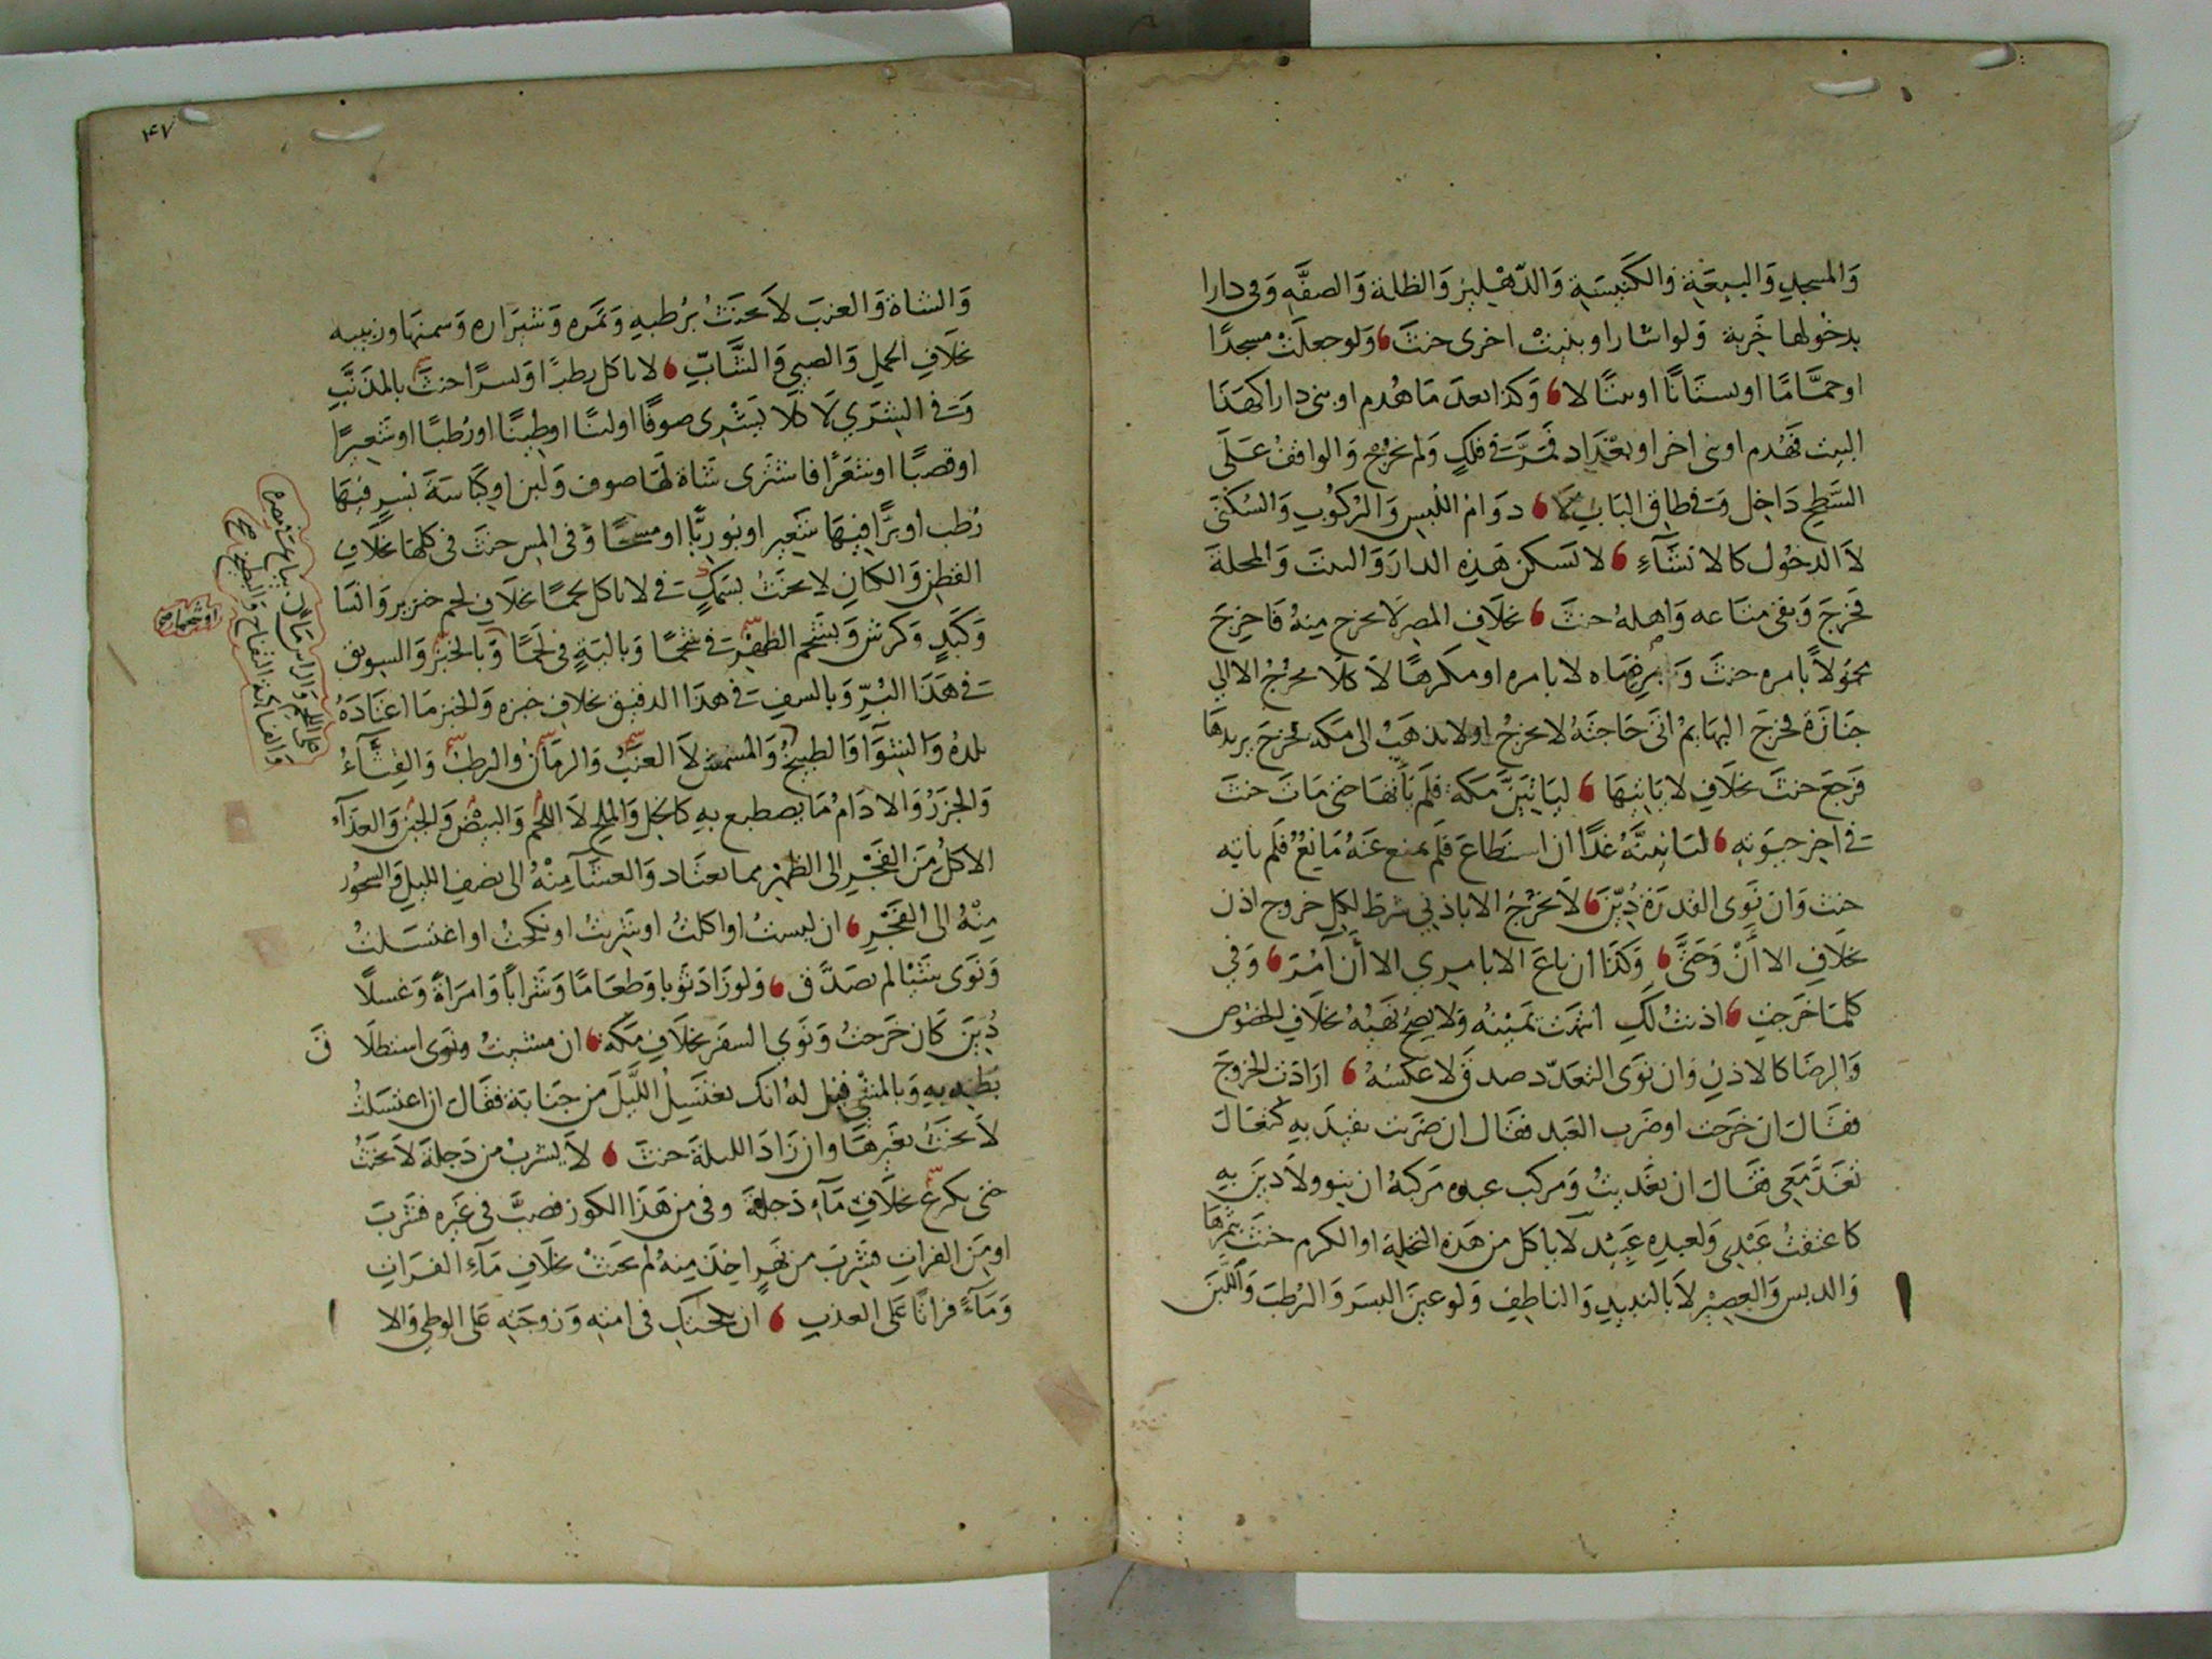 وَالمسجدِ وَالبيعَةِ وَالكَنيسَةِ وَالدّهْليزِ وَالظلة وَالصفَّهِ وَفى دارا
بدخولها خَربة وَلوا شارا وبنيتْ اخرى حنثَ وَلو جعلَتْ مسجدًا
او حمَّامًا او بستَانًا او بيتًا لا وَكذا بعدَ مَا هُدم او بنى دارا كهَذَا
البيت فهُدم او بنى اخر او بغْدَاد فمَرَّتَ فى فلكٍ وَلم يخرُجْ وَالواقفُ عَلَى
السَّطحِ دَاخِل وَفى طاقِ البَابِ لَا دوَامُ اللُبسِ وَالرُكوُبِ وَالسُكنَى
لاَ الدخُول كالانشَآءِ لا تسكن هَذِهِ الدارَ وَالبيتَ وَالمحلةَ
فَخرَجَ وَبقى متَاعه وَاهلهُ حنثَ بخلَافِ المصرِ لَا يخرج مِنهُ فَاخرِجَ
محمُولاً بامره حنثَ وَ برضَاه لا بامره او مكرهًا لَا كَلَا يخرُجُ الا الى
جنَازَة فخرَجَ اليهَا ثمْ اتىَ حَاجتَهُ لا يخرجُ او لا يذهَبْ الى مَكه فخرجَ يريدهَا
فَرجَعَ حنثَ بخلَافِ لا يَاتيهَا ليَاتيَنَّ مَكه فلَم يَأتها حَتى مَاتَ حنثَ
فى اخِر حيوَتِهِ ليَاتينَّهُ غدًا ان استَطَاعَ فلَم يمنع عَنهُ مَانِعُ فلَم ياتِه
حنثَ وَان نَوى القدرَة دُيِّنَ لَا تخرُجُ الا باذنِى شرط لِكلِ خروج اذن
بخلَافِ الا اَنْ وَحَتىَّ وَكَذَا ان باعَ الا بامرِى الا اَن آمُرَ وَفى
كلمَا خَرَجتِ اذنتُ لَكِ انتهَت يمَينهُ وَلا يصحُ نهَيهُ بخلَافِ الخصُوص
وَالرضَا كالاذنِ وَان نَوى التعَدّد صدق لا عَكسهُ ارَادَت الخروجَ
فقَالَ ان خرَجتِ او ضَربَ العَبد فقَال ان ضربت يقيدَ بهِ كتعَالَ
تغدَّ مَعِى فقَالَ ان تغَديتُ وَمركب عبده مَركبهُ ان ينوِ ولاَ دينَ بهِ
كاعتقتُ عَبْدى وَلعبدِهِ عَبِيْد لا ياكل من هَذِه النخلةِ او الكرم حنثَ بثمرِهَا
وَالدبس وَالعصِيْر لَا بالنبيذِ وَالناطِفِ وَلو عينَ البسَرَ وَالرُطبَ وَاللّبَنَ
۴۷
وَالشاةَ وَالعنبَ لاَ يحنَثُ برُطبهِ وَتمَره وَشيرَازه وَسمنهَا وزبيبه
بخلَافِ الحملِ وَالصبيِ وَالشَّابِّ لا ياكل رطبًا وَبسرًا حنثَ بالمذَنَّبِ
وَفى الشرَى لَا كلا يَشتْرى صوفًا او لبنًا او طينًا او رُطبًا او شَعيرًا
او قصبًا او شَعرًا فاشتَرى شَاة لهَا صوف وَلبن او كِبَاسَةَ بُسرٍ فيهَا
رُطب او برًّا فيهَا شَعير او بوريًّا او مسحًا وَفى المس حنثَ فى كلهَا بخلَافِ
القطنِ وَالكتانِ لا يحنَثُ بسَمكٍ فى لا ياكل لحمًا بخلَافِ لحم خنزير وَانسَا
وَكَبَدٍ وَكرش وَبشَحم الظهْرِ فى شحمًا وَبالَيةٍ فى لَحمًا وَبالخبْزِ وَالسويق
فى هَذَا البُرِّ وَبالسفِ فى هذَا الدقيق بخلافِ خبزه وَالخبز مَا اعتَادَهُ
بلدهُ وَالشِوَاءُ وَالطبيخُ وَالمشمش لَا العنَبُ وَالرمَانُ وَالرطبُ وَالقِثَّآءُ
وَالجزَرُ وَالادَامُ مَا يصطبغ بهِ كالخل وَالملح لَا اللحْم وَالبيْض وَالجبن وَالغدَآءُ
الاكلُ مِنَ الفَجْرِ الى الظهر بما يعتَاد وَالعشَآ مِنْهُ الى نصفِ الليلِ وَالسحور
مِنْهُ الى الفَجْرِ ان لبستُ او اكلتُ او شربتُ او نكحتُ او اغتسَلتُ
وَنَوى شَيْئا لم يصَدَّق وَلو زَادَ ثوبا وَطعَامًا وَشَراباً وَامرَأةً وَغسلًا
دُيّنَ كَان خَرَجتُ وَنَوى السفَر بخلَافِ مَكّه ان مشيتُ ونوى استطلَا قَ
بَطنِهِ بهِ وَبالمشىِ قيل لهُ انك تغتَسِلُ اللَّيلَ من جَنَابَة فقَال ان اغتسَلتُ
لَا يحَنثُ بغَيرِهَا وان زَادَ الليلةَ حنثَ لَا يشربُ من دَجلة لاَ يحَنثُ
حَتى يكرع بخلَافِ مَآءِ دَجلةَ وفى من هَذَا الكوز فصبَّ فى غَيره فشَربَ
او مِن الفراتِ فشَربَ من نهَرٍ اخِذَ مِنهُ لم يحَنثْ بخلَافِ مَآءِ الفرَاتِ
وَمَآءً فراتًا عَلى العذبِ ان نكحْتكِ فى امتِهِ وَزوجَتِهِ عَلى الوطىِ وَالا